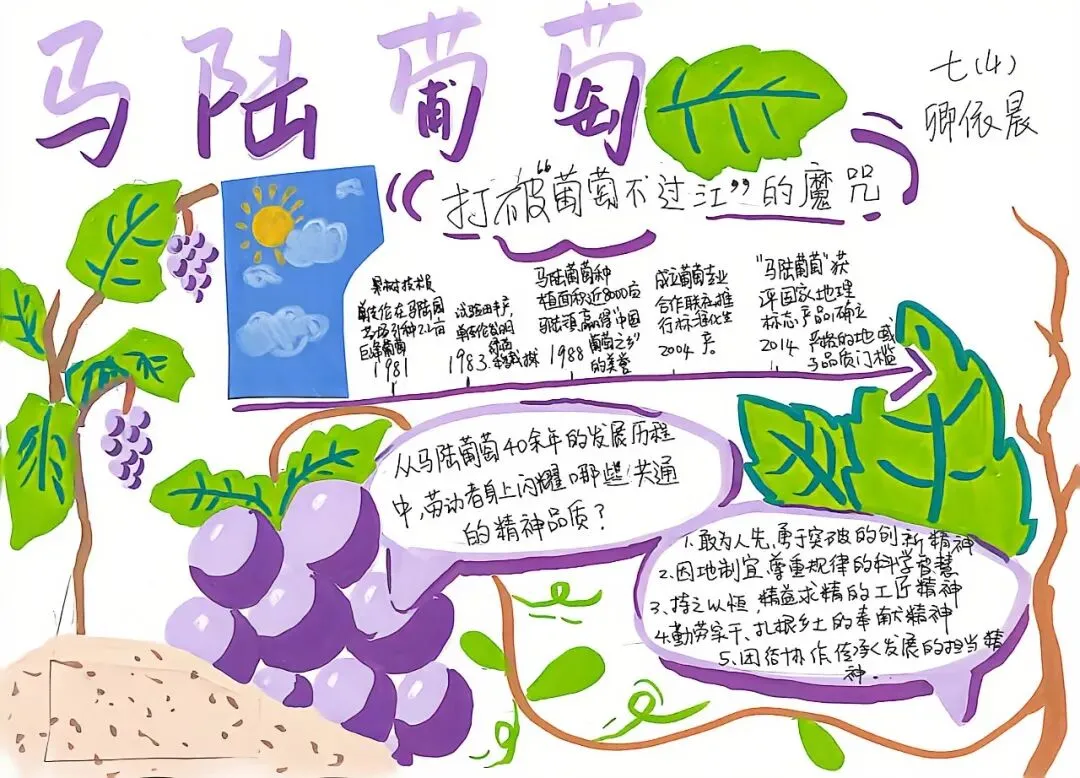 马陆葡萄
七(4)
卿依晨
打破“葡萄不过江”的魔咒
果树技校
单传伦在马陆园
艺场引种2.2亩
巨峰葡萄
1981
试验田丰产,
单传伦发明
栽
1983.
马陆葡萄种
植面积近8000亩
马陆镇赢得“中国
葡萄之乡”
的美誉
1988
成立葡萄专业
合作联社,推
行标准化生
产。
2004
“马陆葡萄”获
评国家地理
标志产品,确立
严格的地域
与品质门槛
2014
从马陆葡萄40余年的发展历程
中,劳动者身上闪耀哪些共通
的精神品质?
1.敢为人先、勇于突破的创新精神
2.因地制宜、尊重规律的科学智慧
3.持之以恒,精益求精的工匠精神
4.勤劳实干、扎根乡土的奉献精神
5.团结协作,传承发展的担当精
神。